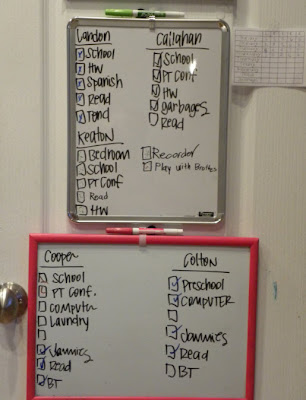 Landon
School
HW
Spanish
Read
Tend
Keaton
Bedroom
School
PT Conf
Read
HW
Callahan
School
PT Conf
HW
garbages
Read
Recorder
Play with Brothers
Cooper
School
PT Conf.
Computer
Laundry
Jammies
Read
BT
Colton
Preschool
COMPUTER
Jammies
Read
BT